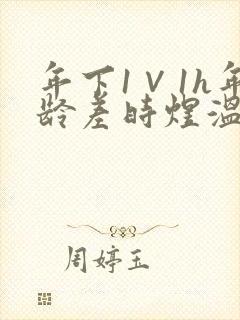 年下1V1h年
龄差时煌温
周婷玉